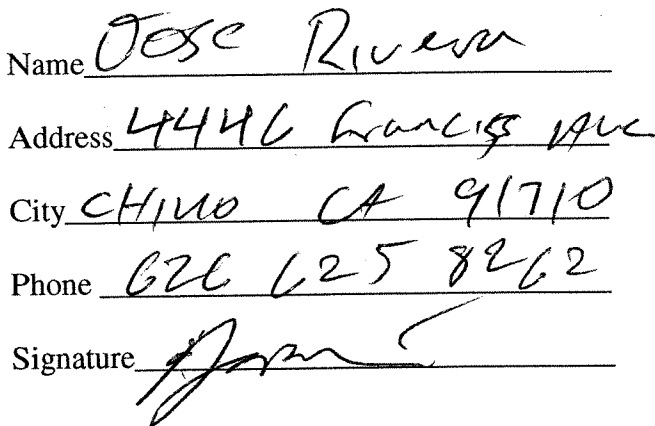 Name Jose Rivera
Address 4446 Francis Ave
City CHINO CA 91710
Phone 626 625 8262
Signature